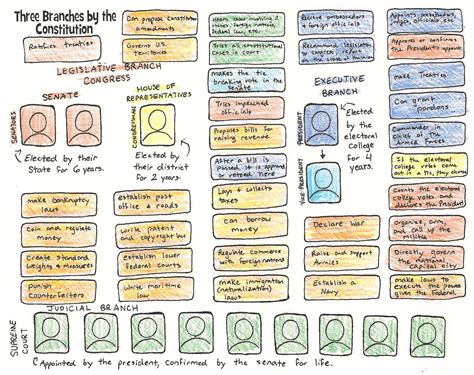 Three Branches by the
Constitution
Ratifies treaties
Can propose Constitution
amendments
Governs U.S.
territories
LEGISLATIVE BRANCH
CONGRESS
SENATE
HOUSE OF
REPRESENTATIVES
SENATORS
CONGRESSMAN
Elected by their
State for 6 years.
Elected by
their district
for 2 years.
Hears cases involving 2
states, foreign nations,
federal law, etc.
Tries all constitutional
cases in court
makes the tie
breaking vote in the
senate
Tries impeached
officials
Proposes bills for
raising revenue
After a bill is
passed, it is approved
or vetoed here
Receive ambassadors
& foreign officials
Recommend legislation
to congress & reports on
the state of the union
EXECUTIVE
BRANCH
PRESIDENT
VICE PRESIDENT
Elected
by the
electoral
College for
4 years.
Appoints
Judges, officials, etc.
Approves or confirms
the President's appointments
make treaties
Can grant
pardons
Commander in
Chief of the
Armed Forces
If the electoral
college votes come
out in a tie, they choose
Counts the electoral
college votes and
declares the President
make bankruptcy
laws
establish post
office & roads
Lays & collects
taxes
Coin and regulate
money
Write patent
and copyright laws
can borrow
money
Declare War
organize, arm,
and call up the
militia
Create standard
weights & measures
establish lower
Federal Courts
Regulate commerce
with foreign nations
Raise and Support
Armies
Directly govern
the National
Capital city
punish
counterfeiters
Write maritime
law
make immigration
(naturalization)
laws
Establish
a Navy
make laws to
execute the powers
given the Federal
JUDICIAL BRANCH
SUPREME
COURT
Appointed by the president, confirmed by the senate for life.